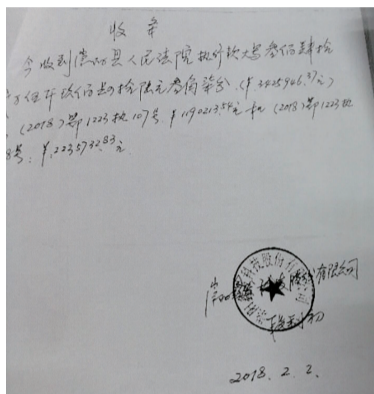 收条
今收到崇阳县人民法院执行款大写叁佰肆拾
万伍仟玖佰肆拾陆元叁角柒分(￥3425946.37元)
(2018)鄂1223执107号 ￥1190213.54元 和(2018)鄂1223执
8号:￥2235732.83元
有限公司
科技股份有限公司
2018.2.2.